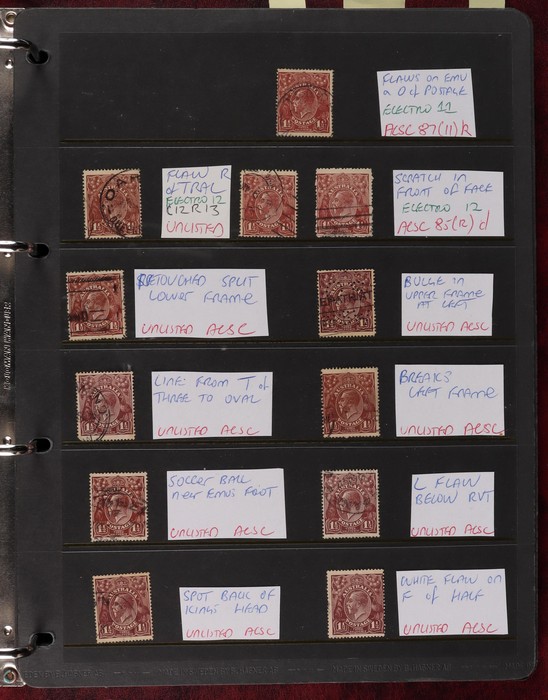 FLAWS ON EMU
& O of POSTAGE
ELECTRO 11
ACSC 87(11)k
FLAW R
of TRAL
ELECTRO 12
(12 R 13
UNLISTED
SCRATCH IN
FRONT OF FACE
ELECTRO 12
ACSC 85(12)d
RETOUCHED SPLIT
LOWER FRAME
UNLISTED ACSC
BULGE IN
UPPER FRAME
AT LEFT
UNLISTED ACSC
LINE FROM T of
THREE TO OVAL
UNLISTED ACSC
BREAKS
LEFT FRAME
UNLISTED ACSC
SOCCER BALL
near EMU'S FOOT
UNLISTED ACSC
L FLAW
BELOW RVT
UNLISTED ACSC
SPOT BACK OF
KING'S HEAD
UNLISTED ACSC
WHITE FLAW ON
F OF HALF
UNLISTED ACSC